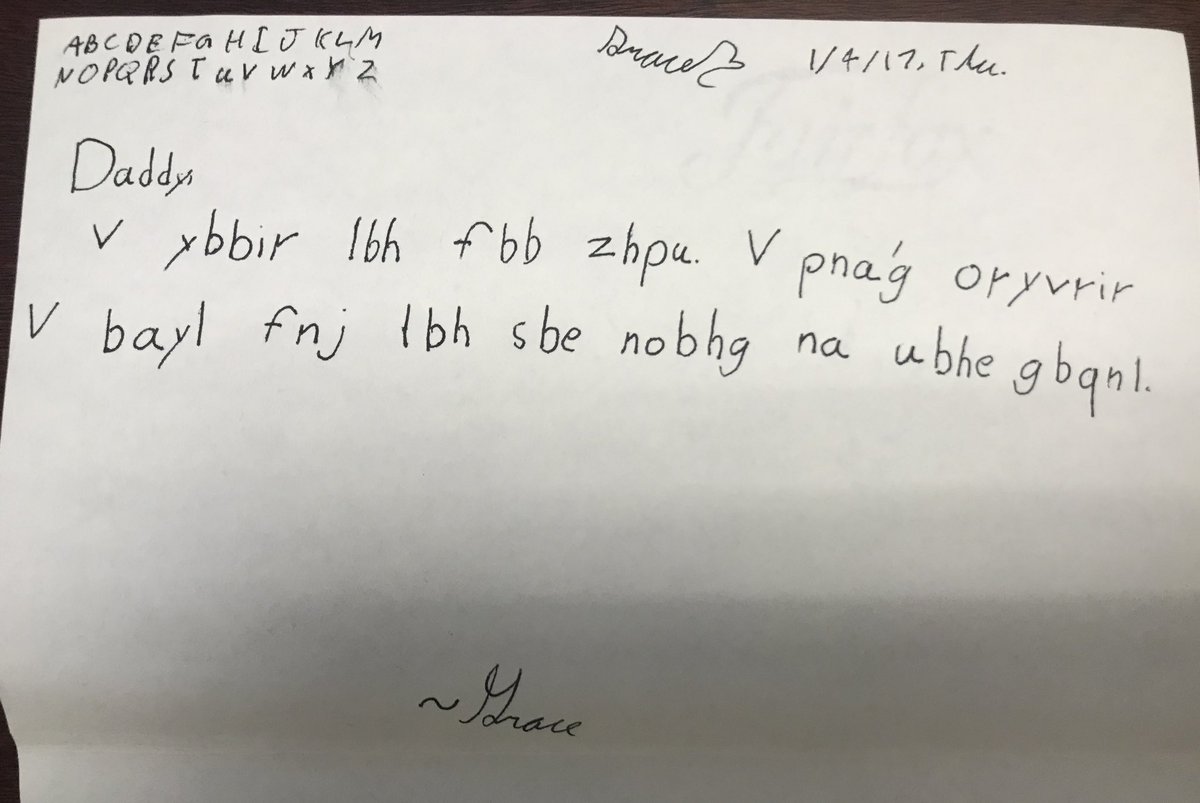 ABCDEFGHIJKLM
NOPQRSTUVWXYZ
Grace 1/4/17, Thu.
Daddy,
V ybbir lbh fbb zhpu. V pna'g oryvrir
V bayl fnj lbh sbe nobhg na ubhe gbqnl.
~Grace